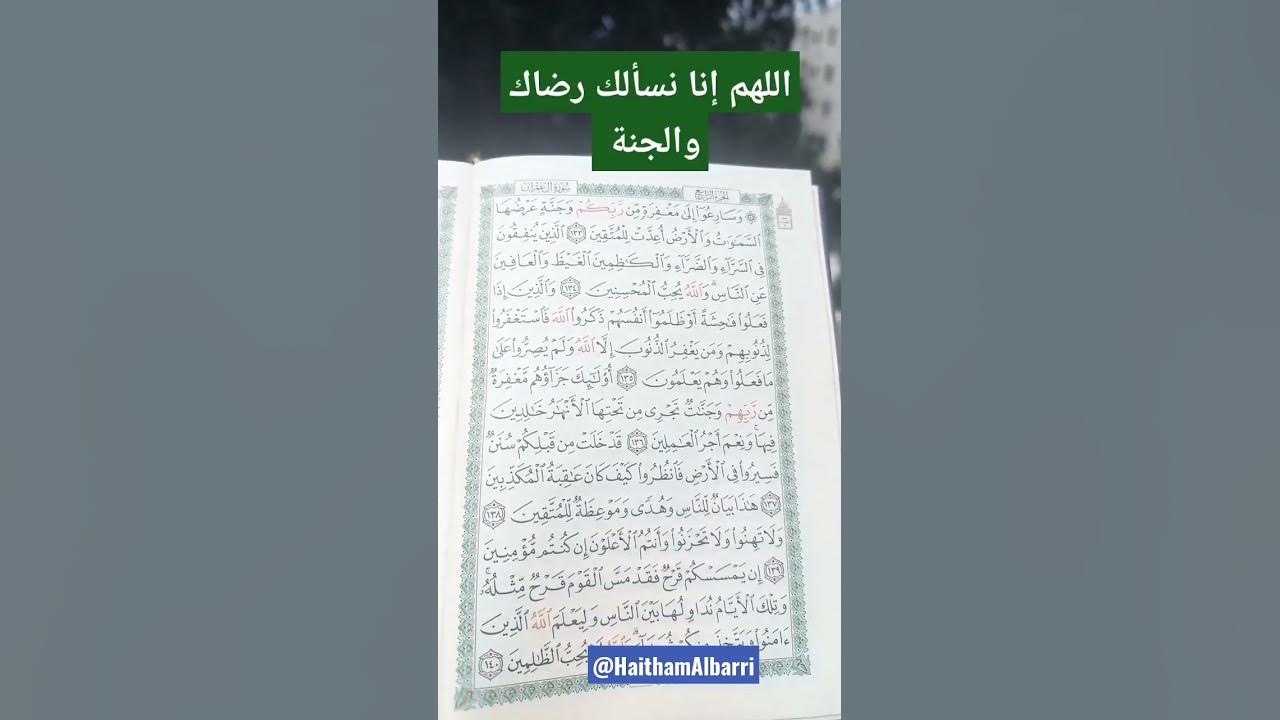 اللهم إنا نسألك رضاك
والجنة
سُورَةُ آلِ عِمْرَانَ
الجُزْءُ الرَّابِعُ
۞ وَسَارِعُوٓا۟ إِلَىٰ مَغْفِرَةٍ مِّن رَّبِّكُمْ وَجَنَّةٍ عَرْضُهَا
ٱلسَّمَٰوَٰتُ وَٱلْأَرْضُ أُعِدَّتْ لِلْمُتَّقِينَ ١٣٣ ٱلَّذِينَ يُنفِقُونَ
فِى ٱلسَّرَّآءِ وَٱلضَّرَّآءِ وَٱلْكَٰظِمِينَ ٱلْغَيْظَ وَٱلْعَافِينَ
عَنِ ٱلنَّاسِ ۗ وَٱللَّهُ يُحِبُّ ٱلْمُحْسِنِينَ ١٣٤ وَٱلَّذِينَ إِذَا
فَعَلُوا۟ فَٰحِشَةً أَوْ ظَلَمُوٓا۟ أَنفُسَهُمْ ذَكَرُوا۟ ٱللَّهَ فَٱسْتَغْفَرُوا۟
لِذُنُوبِهِمْ وَمَن يَغْفِرُ ٱلذُّنُوبَ إِلَّا ٱللَّهُ وَلَمْ يُصِرُّوا۟ عَلَىٰ
مَا فَعَلُوا۟ وَهُمْ يَعْلَمُونَ ١٣٥ أُو۟لَٰٓئِكَ جَزَآؤُهُم مَّغْفِرَةٌ
مِّن رَّبِّهِمْ وَجَنَّٰتٌ تَجْرِى مِن تَحْتِهَا ٱلْأَنْهَٰرُ خَٰلِدِينَ
فِيهَا ۚ وَنِعْمَ أَجْرُ ٱلْعَٰمِلِينَ ١٣٦ قَدْ خَلَتْ مِن قَبْلِكُمْ سُنَنٌ
فَسِيرُوا۟ فِى ٱلْأَرْضِ فَٱنظُرُوا۟ كَيْفَ كَانَ عَٰقِبَةُ ٱلْمُكَذِّبِينَ
١٣٧ هَٰذَا بَيَانٌ لِّلنَّاسِ وَهُدًى وَمَوْعِظَةٌ لِّلْمُتَّقِينَ ١٣٨
وَلَا تَهِنُوا۟ وَلَا تَحْزَنُوا۟ وَأَنتُمُ ٱلْأَعْلَوْنَ إِن كُنتُم مُّؤْمِنِينَ
١٣٩ إِن يَمْسَسْكُمْ قَرْحٌ فَقَدْ مَسَّ ٱلْقَوْمَ قَرْحٌ مِّثْلُهُۥ ۚ
وَتِلْكَ ٱلْأَيَّامُ نُدَاوِلُهَا بَيْنَ ٱلنَّاسِ وَلِيَعْلَمَ ٱللَّهُ ٱلَّذِينَ
ءَامَنُوا۟ وَيَتَّخِذَ مِنكُمْ يُحِبُّ ٱلظَّٰلِمِينَ ١٤٠
@HaithamAlbarri